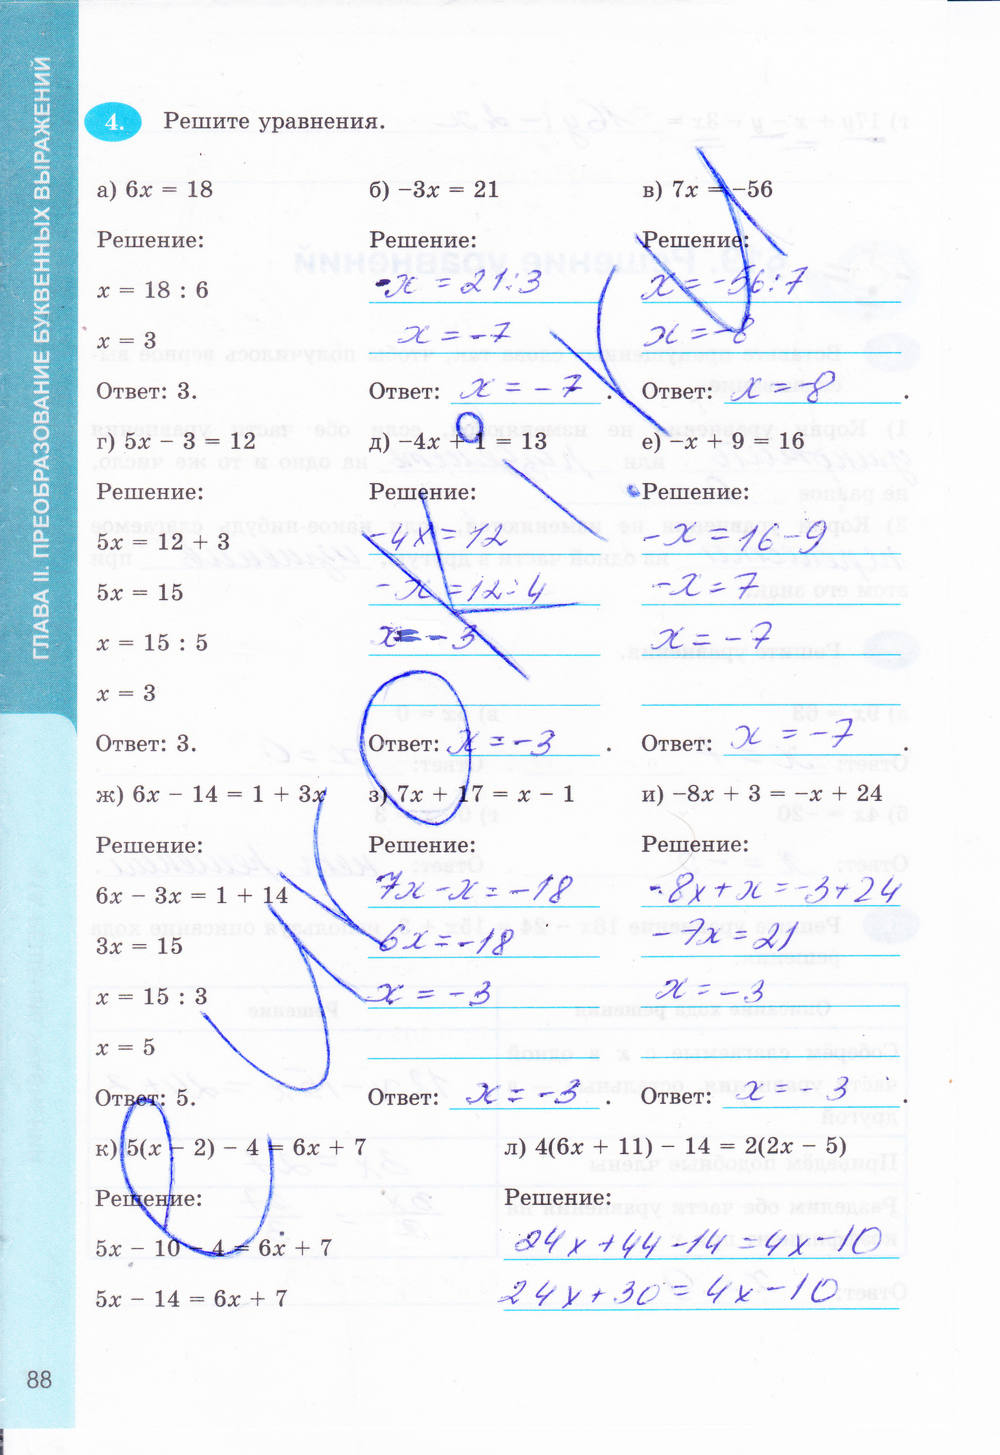 ГЛАВА II. ПРЕОБРАЗОВАНИЕ БУКВЕННЫХ ВЫРАЖЕНИЙ
4. Решите уравнения.
а) 6x = 18
Решение:
x = 18 : 6
x = 3
Ответ: 3.
б) –3x = 21
Решение:
-x = 21:3
x = -7
Ответ: x = -7.
в) 7x = –56
Решение:
x = -56:7
x = -8
Ответ: x = -8.
г) 5x – 3 = 12
Решение:
5x = 12 + 3
5x = 15
x = 15 : 5
x = 3
Ответ: 3.
д) –4x + 1 = 13
Решение:
-4x = 12
-x = 12:4
x = -3
Ответ: x = -3.
е) –x + 9 = 16
Решение:
-x = 16-9
-x = 7
x = -7
Ответ: x = -7.
ж) 6x – 14 = 1 + 3x
Решение:
6x – 3x = 1 + 14
3x = 15
x = 15 : 3
x = 5
Ответ: 5.
з) 7x + 17 = x – 1
Решение:
7x - x = -18
6x = -18
x = -3
Ответ: x = -3.
и) –8x + 3 = –x + 24
Решение:
-8x + x = -3+24
-7x = 21
x = -3
Ответ: x = -3.
к) 5(x – 2) – 4 = 6x + 7
Решение:
5x – 10 – 4 = 6x + 7
5x – 14 = 6x + 7
л) 4(6x + 11) – 14 = 2(2x – 5)
Решение:
24x + 44 - 14 = 4x - 10
24x + 30 = 4x - 10
88